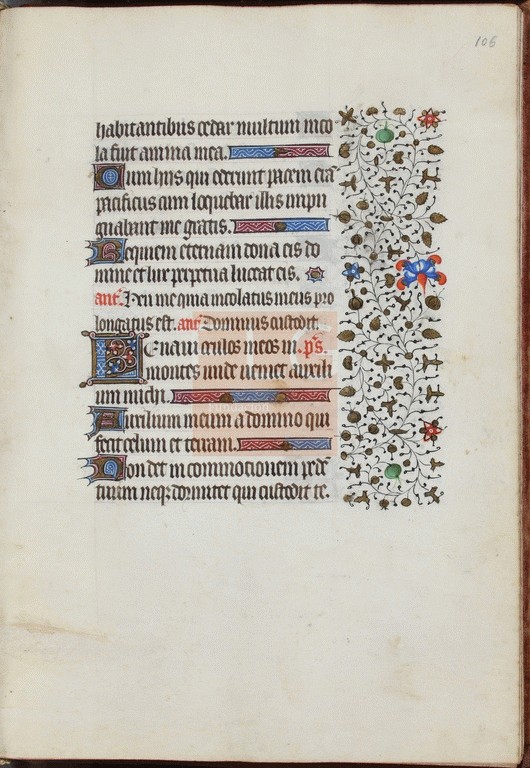 106
habitantibus cedar multum inco
la fuit anima mea.
Cum hiis qui oderunt pacem erã
pacificus cum loquebar illis inpu
gnabant me gratis.
Requiem eternam dona eis do
mine et lux perpetua luceat eis.
añ. Heu me quia incolatus meus pro
longatus est. añ. Dominus custodit.
Levavi oculos meos in .p̃s.
montes unde veniet auxili
um michi.
Auxilium meum a domino qui
fecit celum et terram.
Non det in commotionem pedẽ
tuum neqꝫ dormitet qui custodit te.